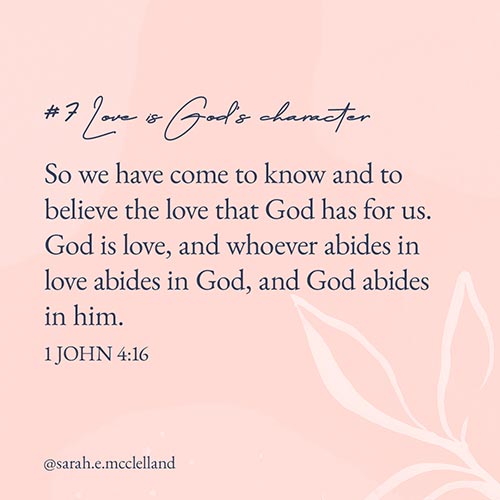 #7 Love is God's character
So we have come to know and to
believe the love that God has for us.
God is love, and whoever abides in
love abides in God, and God abides
in him.
1 JOHN 4:16
@sarah.e.mcclelland